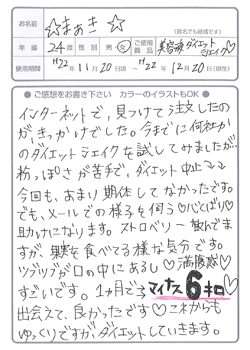 お名前 ☆まあき☆
(匿名でも結構です)
年齢 24歳 性別 男・女 ご使用商品 美容液ダイエットシェイク♡
使用期間 H22年11月20日頃 ～ H22年12月20日(現在)
●ご感想をお書き下さい カラーのイラストもOK●
インターネットで、見つけて注文したの
がきっかけでした。今までに何社か
のダイエットシェイクを試してみましたが…
粉っぽさが苦手で、ダイエット中止↓↓
今回も、あまり期待してなかったです。
でも、メールでの様子を伺う♡いくばくり♡
助けになります。ストロベリー飲んでま
すが、果実を食べてる様な気分です。
ツブツブが口の中にあるし♡満腹感♡
すごいです。1ヶ月でマイナス6キロ
出会えて、良かったです♡これからも
ゆっくりですが、ダイエットしていきます。